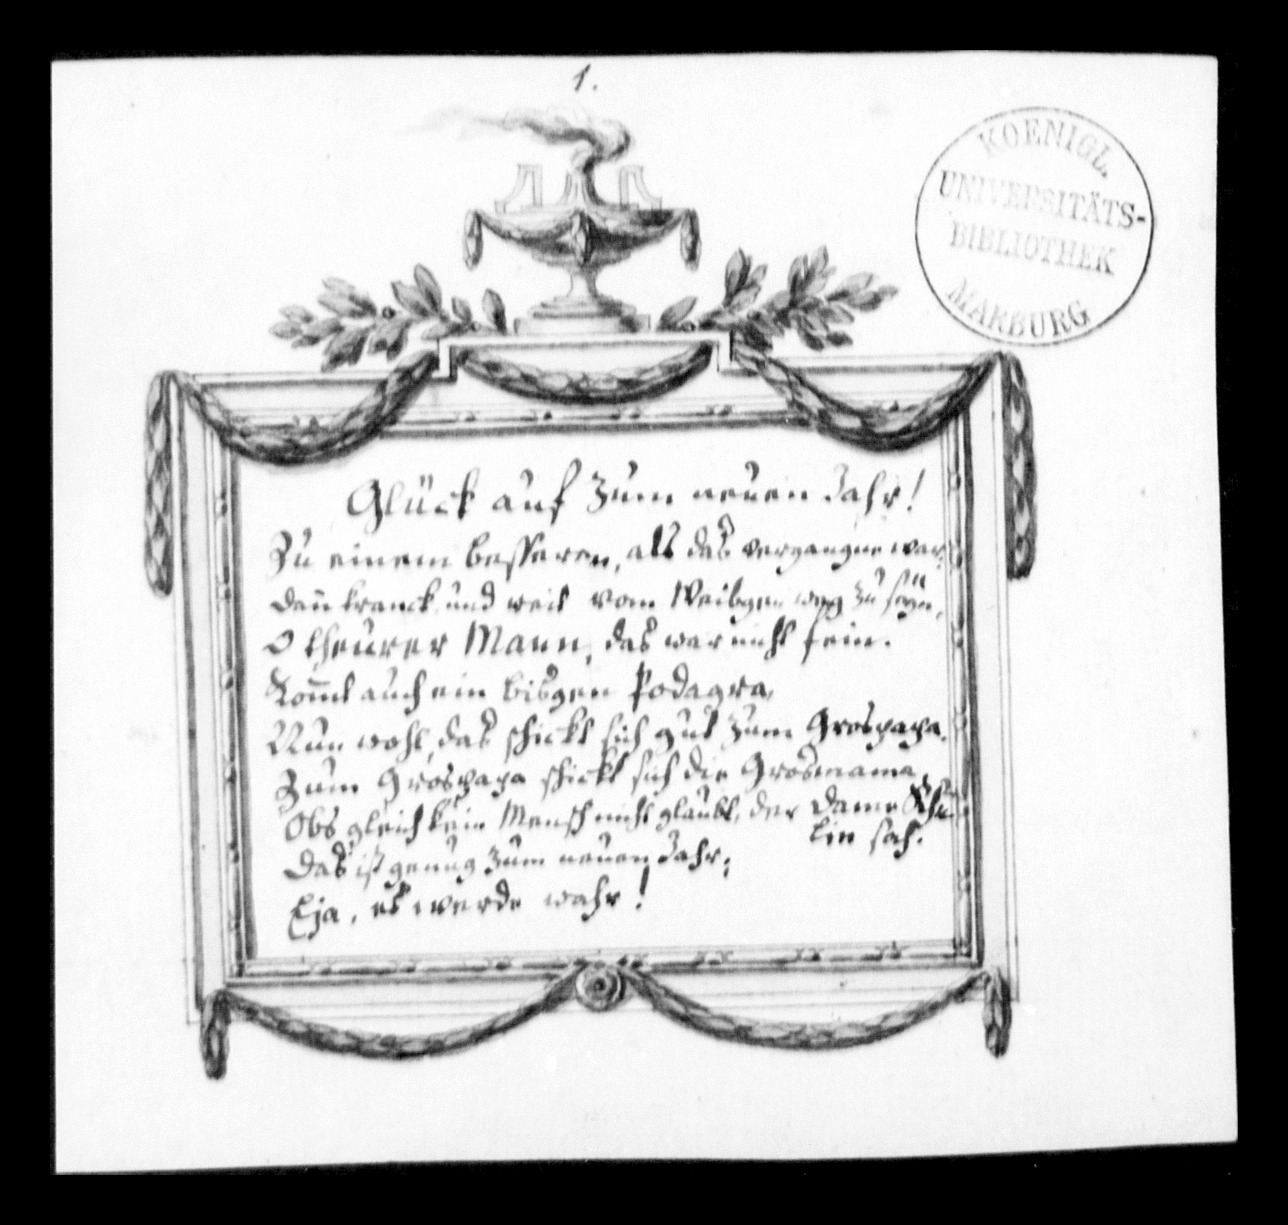 1.
KOENIGL.
UNIVERSITÄTS-
BIBLIOTHEK
MARBURG
Glück auf zum neuen Jahr!
Zu einem besseren, als das vergangne war,
Dañ kranck und weit vom Weibgen weg zu seÿn,
O theurer Mann, das war nicht fein.
Kom̃t auch ein bisgen Podagra,
Nun wohl, das schickt sich gut zum Grospapa.
Zum Grospapa schickt sich die Grosmama
Obs gleich kein Mensch nicht glaubt, der Dame
lin sah.
Das ist genug zum neuen Jahr;
Eja, es werde wahr!